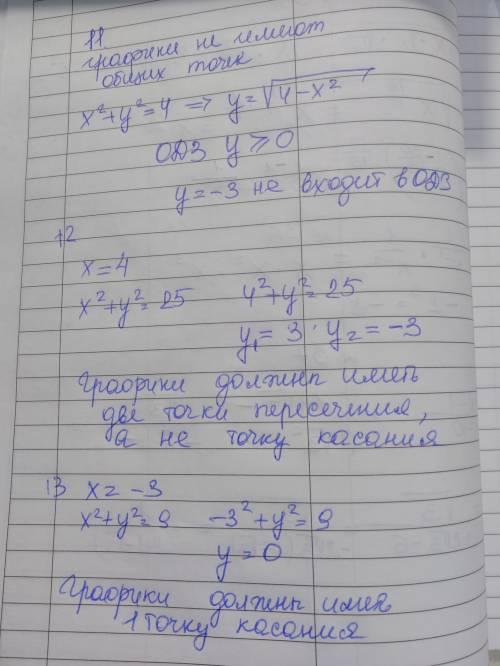 11
графики не имеют
общих точек
x²+y²=4 => y=√4-x²
ОДЗ y⩾0
y=-3 не входит в ОДЗ
12
x=4
x²+y²=25 4²+y²=25
y₁=3 y₂=-3
Графики должны иметь
две точки пересечения,
а не точку касания
13 x=-3
x²+y²=9 -3²+y²=9
y=0
Графики должны иметь
1 точку касания